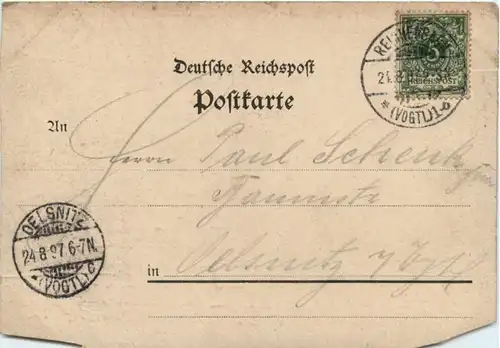 Deutsche Reichspost
Postkarte
An
Herrn Paul Schenk
in Oelsnitz i/Vgtl
REICHENBACH
(VOGTL) 1
5
REICHSPOST
OELSNITZ
24.8.97.6-7N.
(VOGTL) c